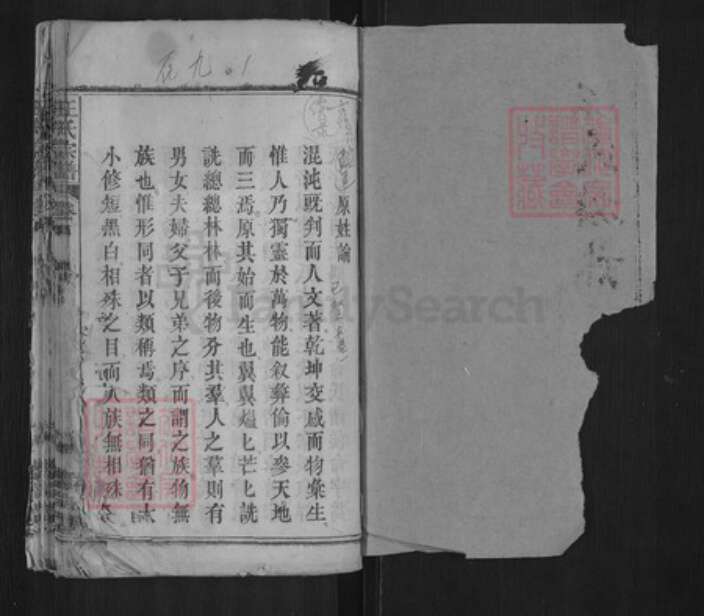 原姓論
混沌旣判而人文著乾坤交感而物彙生
惟人乃獨靈於萬物能叙彝倫以參天地
而三焉原其始而生也翼翼縕匕芒匕詵
詵總總林林而後物分其羣人之羣則有
男女夫婦父子兄弟之序而謂之族物無
族也惟形同者以類稱焉類之同猶有大
小修短黑白相殊之目而人族無相殊
王氏宗譜
九
FamilySearch